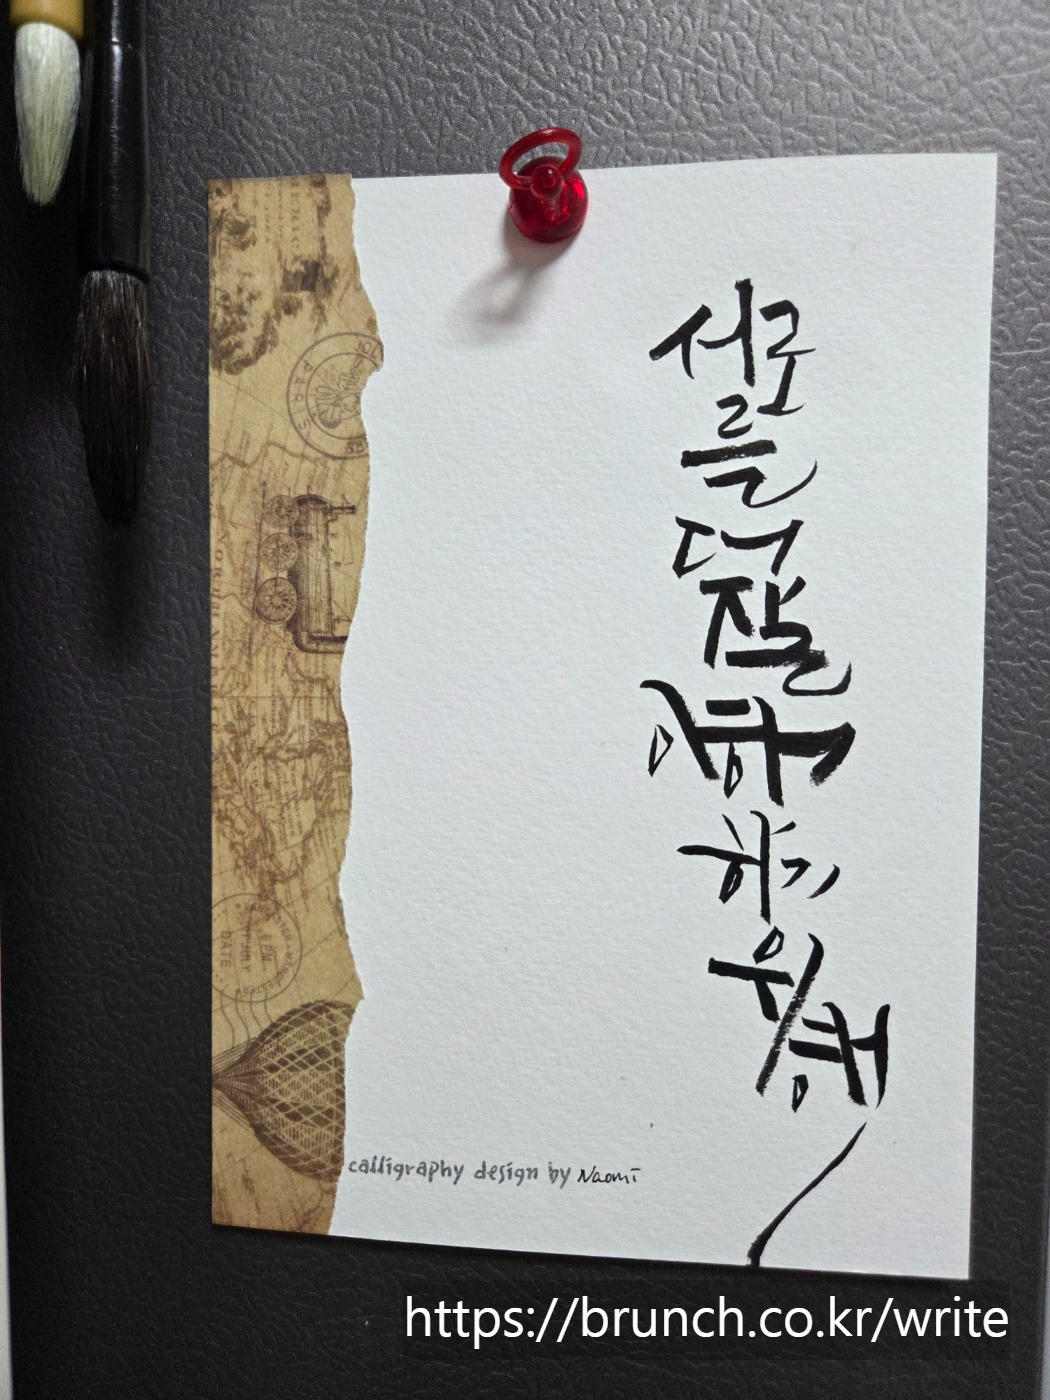 서로
를
더
잘
이해
하기
위
해
PARIS
DATE
calligraphy design by Naomi
https://brunch.co.kr/write